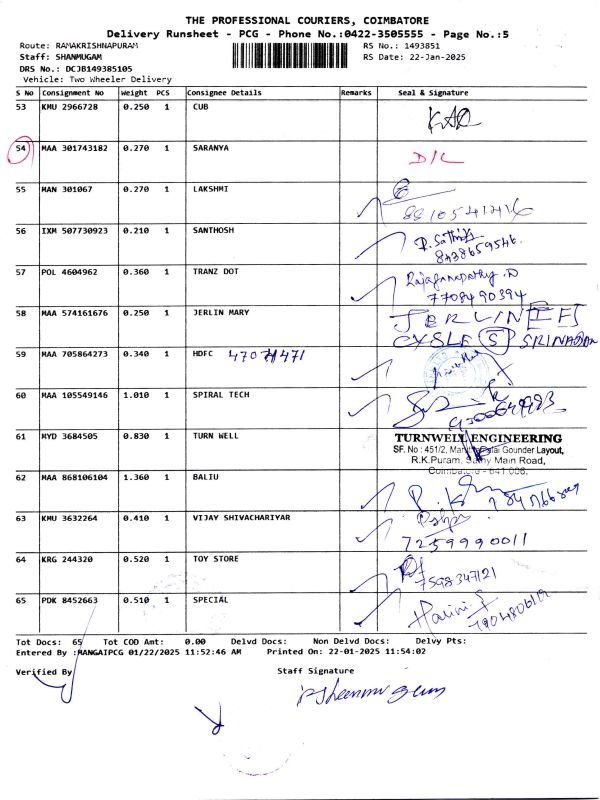 THE PROFESSIONAL COURIERS, COIMBATORE
Delivery Runsheet - PCG - Phone No.:0422-3505555 - Page No.:5
Route: RAMAKRISHNAPURAM RS No.: 1493851
Staff: SHANMUGAM RS Date: 22-Jan-2025
DRS No.: DCJB149385105
Vehicle: Two Wheeler Delivery
S No Consignment No Weight PCS Consignee Details Remarks Seal & Signature
53 KMU 2966728 0.250 1 CUB
54 MAA 301743182 0.270 1 SARANYA D/L
55 MAN 301067 0.270 1 LAKSHMI
56 IXM 507730923 0.210 1 SANTHOSH
8438659546
57 POL 4604962 0.360 1 TRANZ DOT
7708490394
58 MAA 574161676 0.250 1 JERLIN MARY JERLIN
59 MAA 705864273 0.340 1 HDFC
60 MAA 105549146 1.010 1 SPIRAL TECH
61 MYD 3684505 0.830 1 TURN WELL TURNWELL ENGINEERING
SF. No : 451/2, Gounder Layout,
R.K.Puram, Sathy Main Road,
Coimbatore - 641 006.
62 MAA 868106104 1.360 1 BALIU
63 KMU 3632264 0.410 1 VIJAY SHIVACHARIYAR
7259990011
64 KRG 244320 0.520 1 TOY STORE
7598347121
65 PDK 8452663 0.510 1 SPECIAL Harini
Tot Docs: 65 Tot COD Amt: 0.00 Delvd Docs: Non Delvd Docs: Delvy Pts:
Entered By :MANGAIPCG 01/22/2025 11:52:46 AM Printed On: 22-01-2025 11:54:02
Verified By Staff Signature